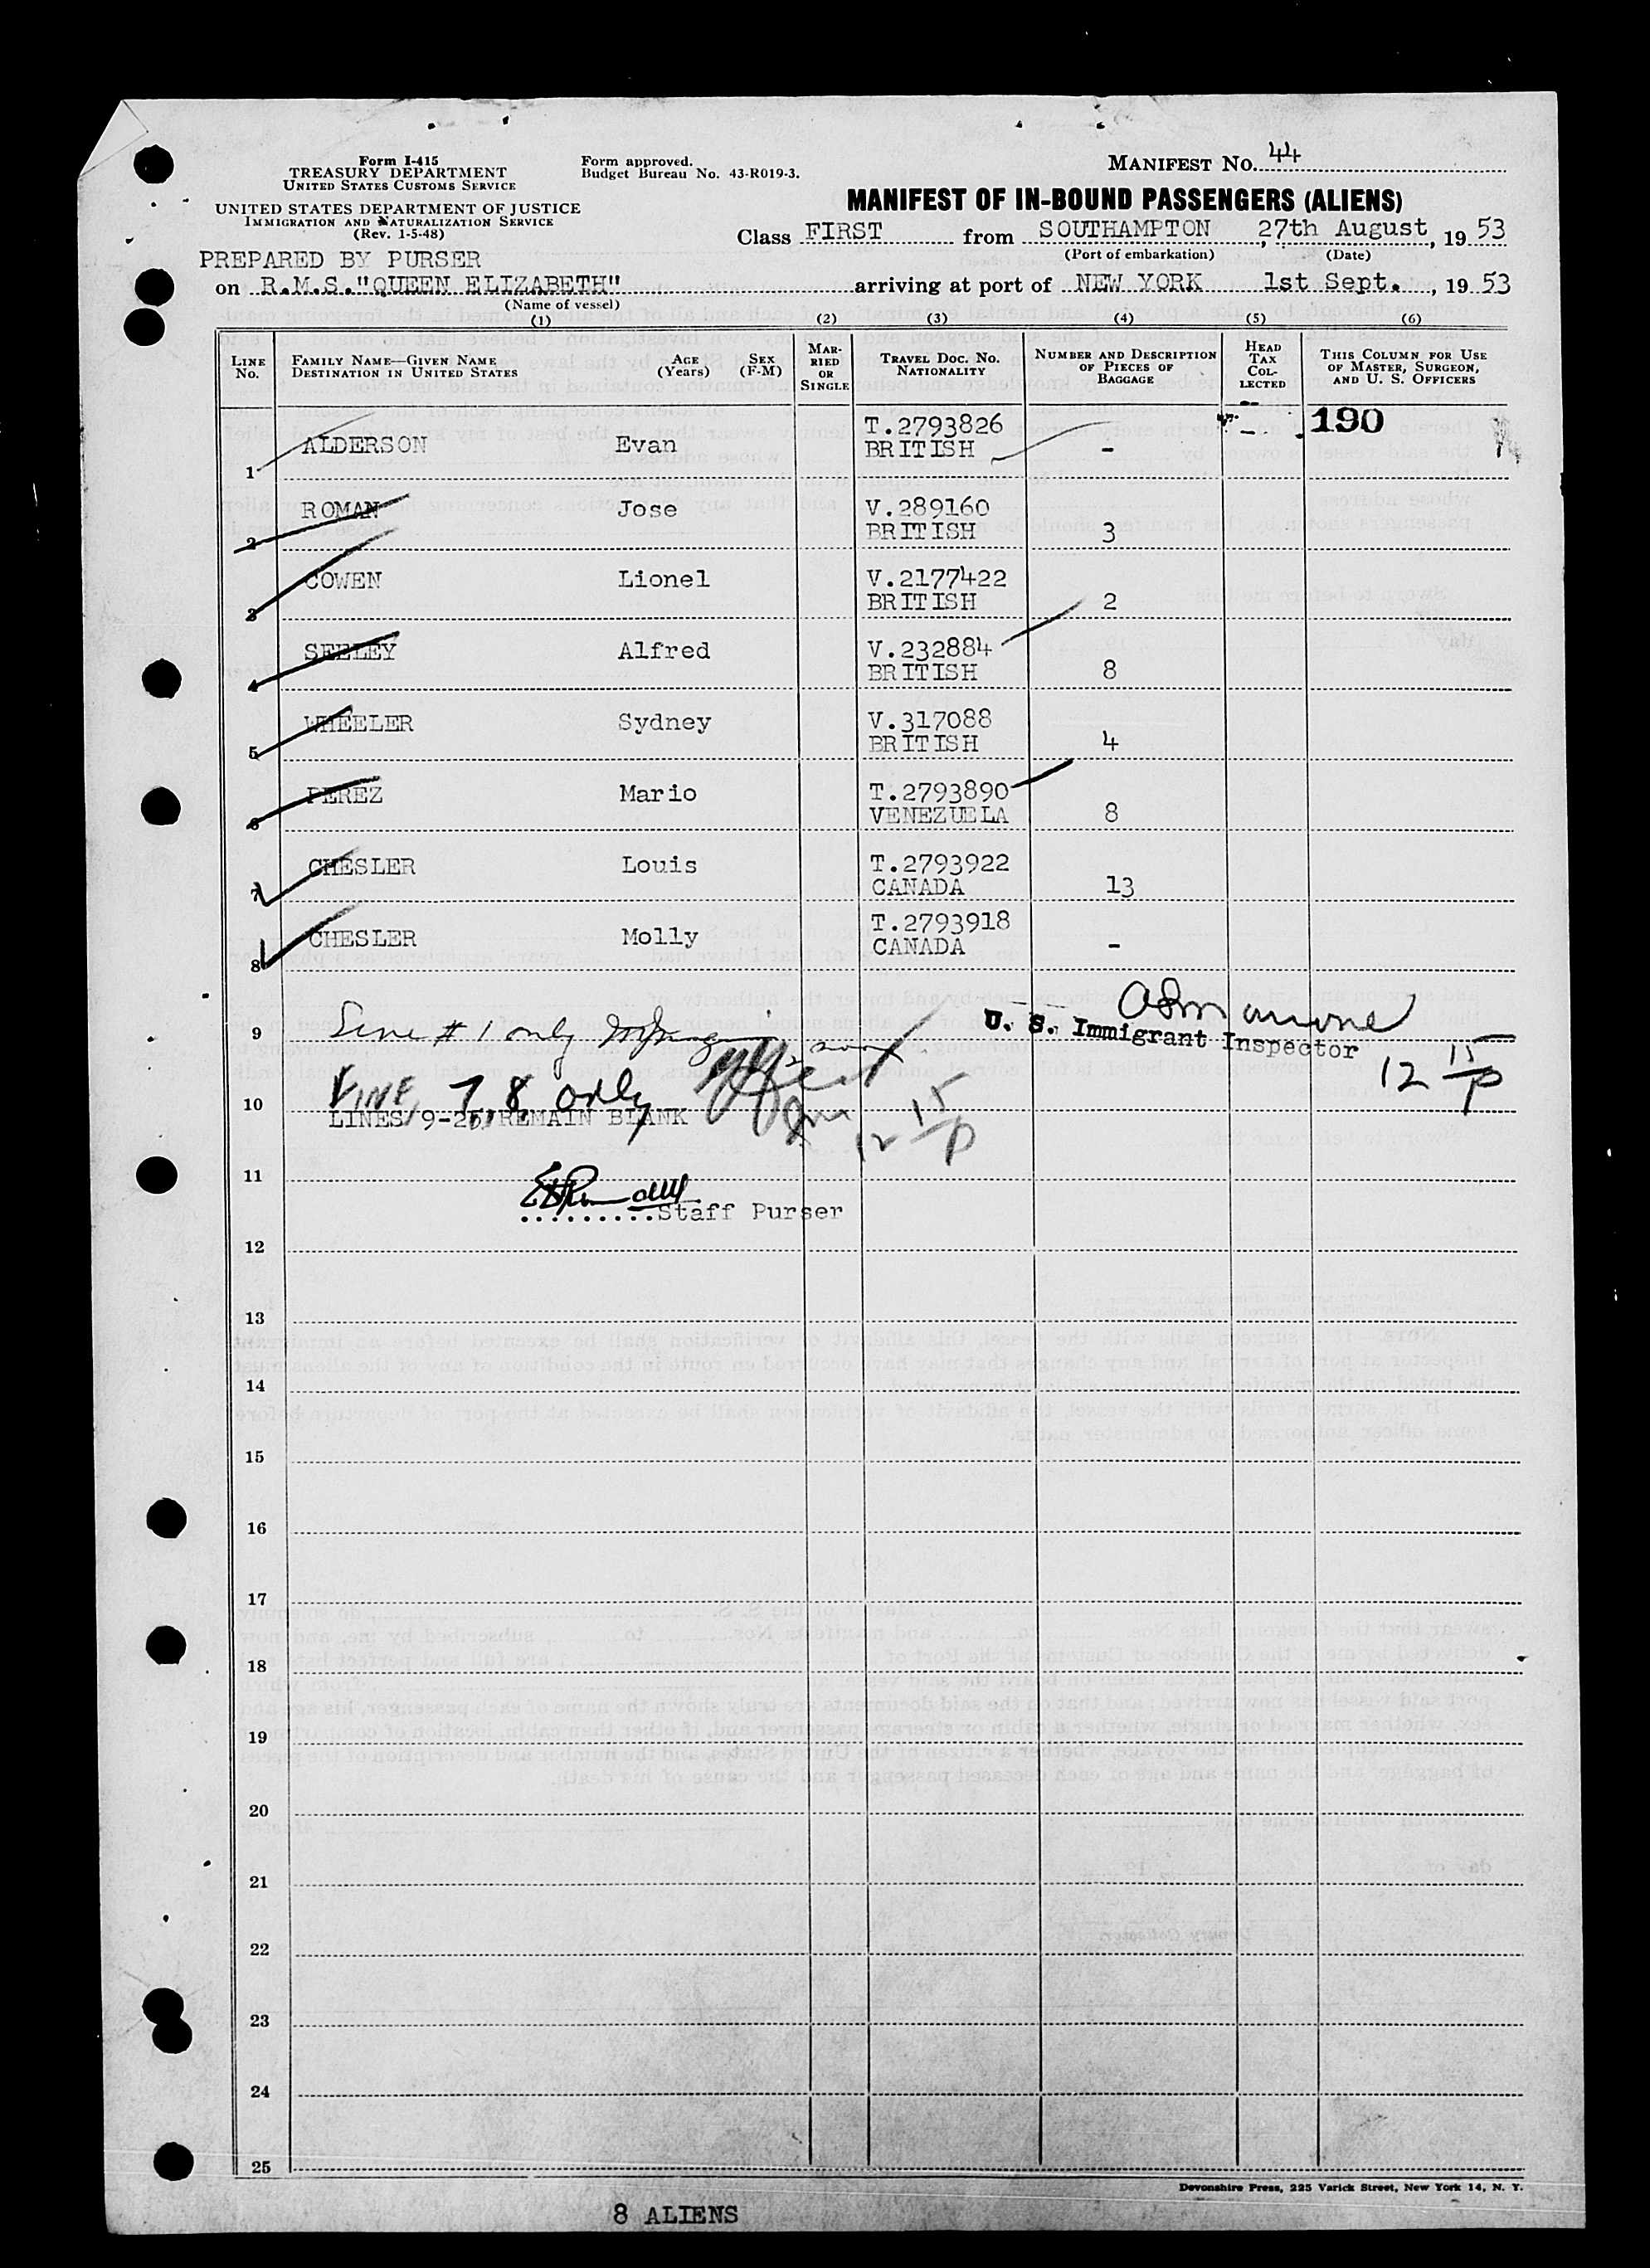 Form I-415
TREASURY DEPARTMENT
UNITED STATES CUSTOMS SERVICE
UNITED STATES DEPARTMENT OF JUSTICE
IMMIGRATION AND NATURALIZATION SERVICE
(Rev. 1-5-48)
Form approved.
Budget Bureau No. 43-R019-3.
MANIFEST NO. 44
MANIFEST OF IN-BOUND PASSENGERS (ALIENS)
Class FIRST from SOUTHAMPTON, 27th August, 19 53
(Port of embarkation) (Date)
PREPARED BY PURSER
on R.M.S."QUEEN ELIZABETH" arriving at port of NEW YORK 1st Sept., 19 53
(Name of vessel)
(1) (2) (3) (4) (5) (6)
LINE No. FAMILY NAME—GIVEN NAME DESTINATION IN UNITED STATES AGE (Years) SEX (F-M) MARRIED OR SINGLE TRAVEL DOC. NO. NATIONALITY NUMBER AND DESCRIPTION OF PIECES OF BAGGAGE HEAD TAX COLLECTED THIS COLUMN FOR USE OF MASTER, SURGEON, AND U. S. OFFICERS
190
1 ALDERSON Evan T.2793826 BRITISH -
2 ROMAN Jose V.289160 BRITISH 3
3 COWEN Lionel V.2177422 BRITISH 2
4 SEELEY Alfred V.232884 BRITISH 8
5 WHEELER Sydney V.317088 BRITISH 4
6 PEREZ Mario T.2793890 VENEZUELA 8
7 CHESLER Louis T.2793922 CANADA 13
8 CHESLER Molly T.2793918 CANADA -
9 Line # 1 only
U. S. Immigrant Inspector
12 15/P
10 LINE 7, 8, only
12 15/P
LINES 9-25, REMAIN BLANK
11
.........Staff Purser
12
13
14
15
16
17
18
19
20
21
22
23
24
25
Devonshire Press, 225 Varick Street, New York 14, N. Y.
8 ALIENS